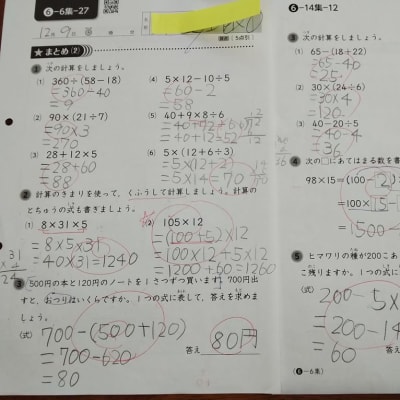 6-6集-27
12月9日
★まとめ(2)
1 次の計算をしましょう。
(1) 360÷(58-18)
=360÷40
=9
(2) 90×(21÷7)
=90×3
=270
(3) 28+12×5
=28+60
=88
(4) 5×12-10÷5
=60-2
=58
(5) 40+9×8÷6
=40+12=52
(6) 5×(12+6÷3)
=5×(12+2)
=5×14=70
2 計算のきまりを使って、くふうして計算しましょう。計算の
とちゅうの式も書きましょう。
(1) 8×31×5
=8×5×31
=40×31=1240
(2) 105×12
=(100+5)×12
=100×12+5×12
=1200+60=1260
3 500円の本と120円のノートを1さつずつ買います。700円出
すと、おつりはいくらですか。1つの式に表して、答えを求めま
しょう。
(式) 700-(500+120)
=700-620
=80
答え 80円
6-14集-12
3 次の計算をしましょう。
(1) 65-(18+22)
=65-40
=25
(2) 30×(24÷6)
=30×4
=120
(3) 40-20÷5
=40-4
=36
4 次の□にあてはまる数を書
98×15=(100-2)
=100×15-
=1500-
5 ヒマワリの種が200こあ
こ残りますか。1つの式に
(式)
200-5×
=200-14
=60
(6-6集)